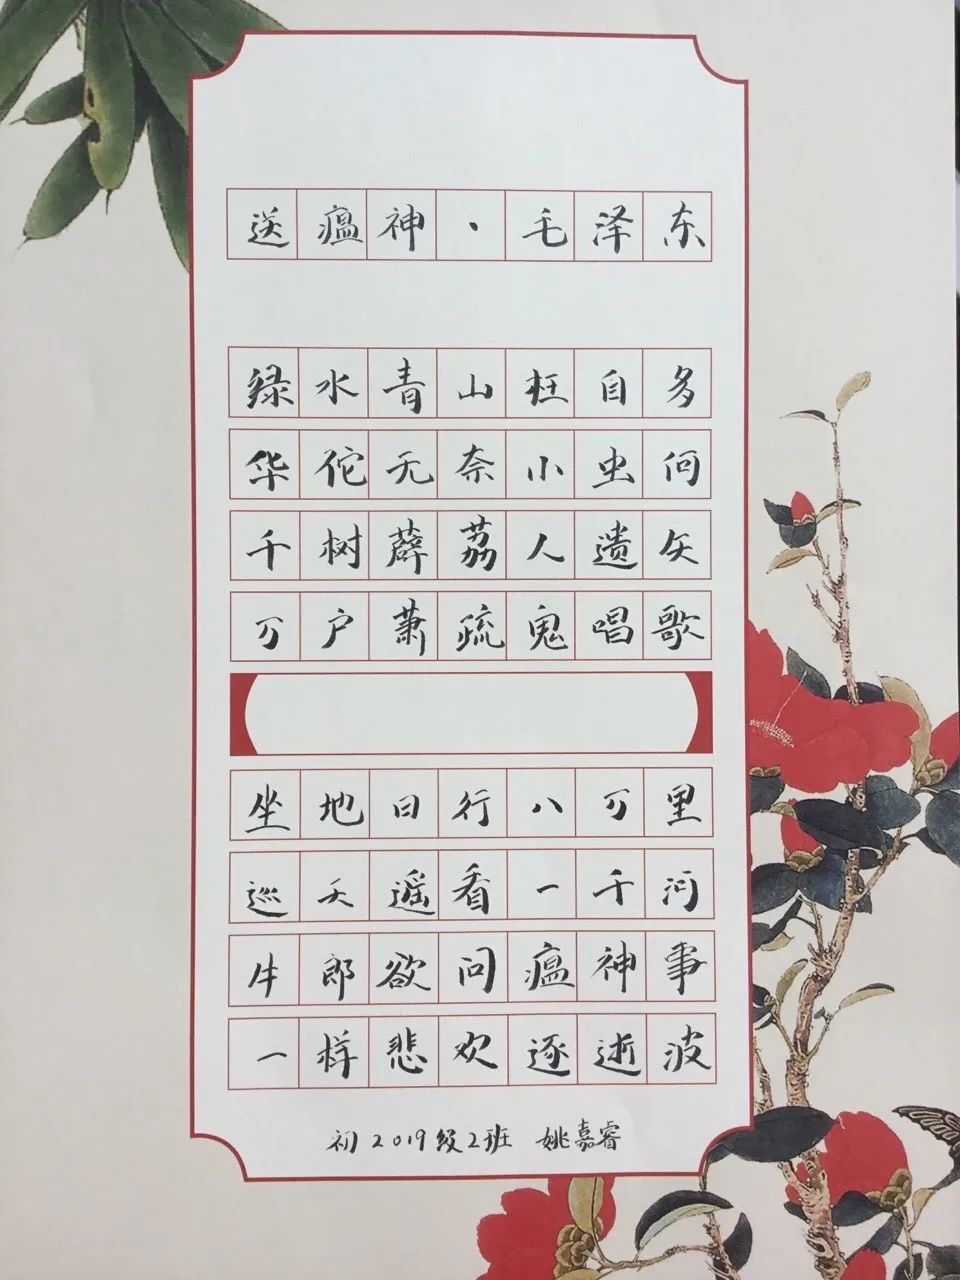 送瘟神·毛泽东
绿水青山枉自多
华佗无奈小虫何
千树薜荔人遗矢
万户萧疏鬼唱歌
坐地日行八万里
巡天遥看一千河
牛郎欲问瘟神事
一样悲欢逐逝波
初2019级2班 姚嘉睿